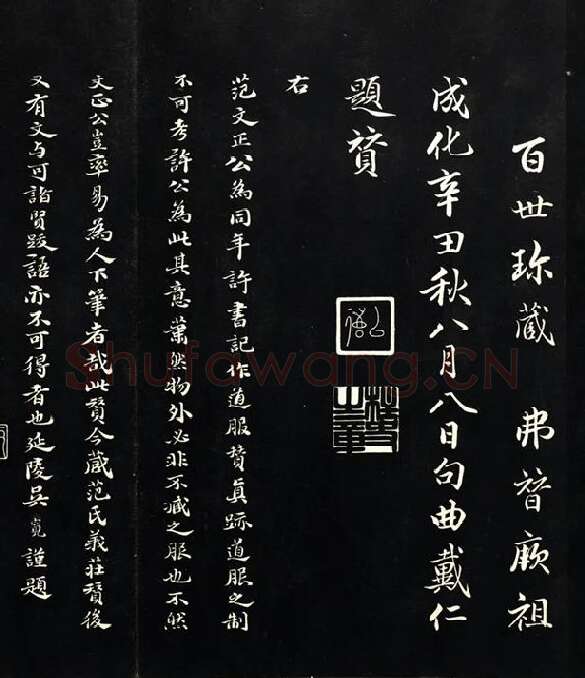 百世珎藏 弗替厥祖
成化辛丑秋八月八日句曲戴仁
題贊
右
范文正公為同年許書記作道服贊真跡道服之制
不可考許公為此其意蕭然物外必非不臧之服也不然
文正公豈率易為人下筆者哉此贊今藏范氏義莊贊後
又有文与可諸賢跋語亦不可得者也延陵吳寬謹題
Shufawang.CN